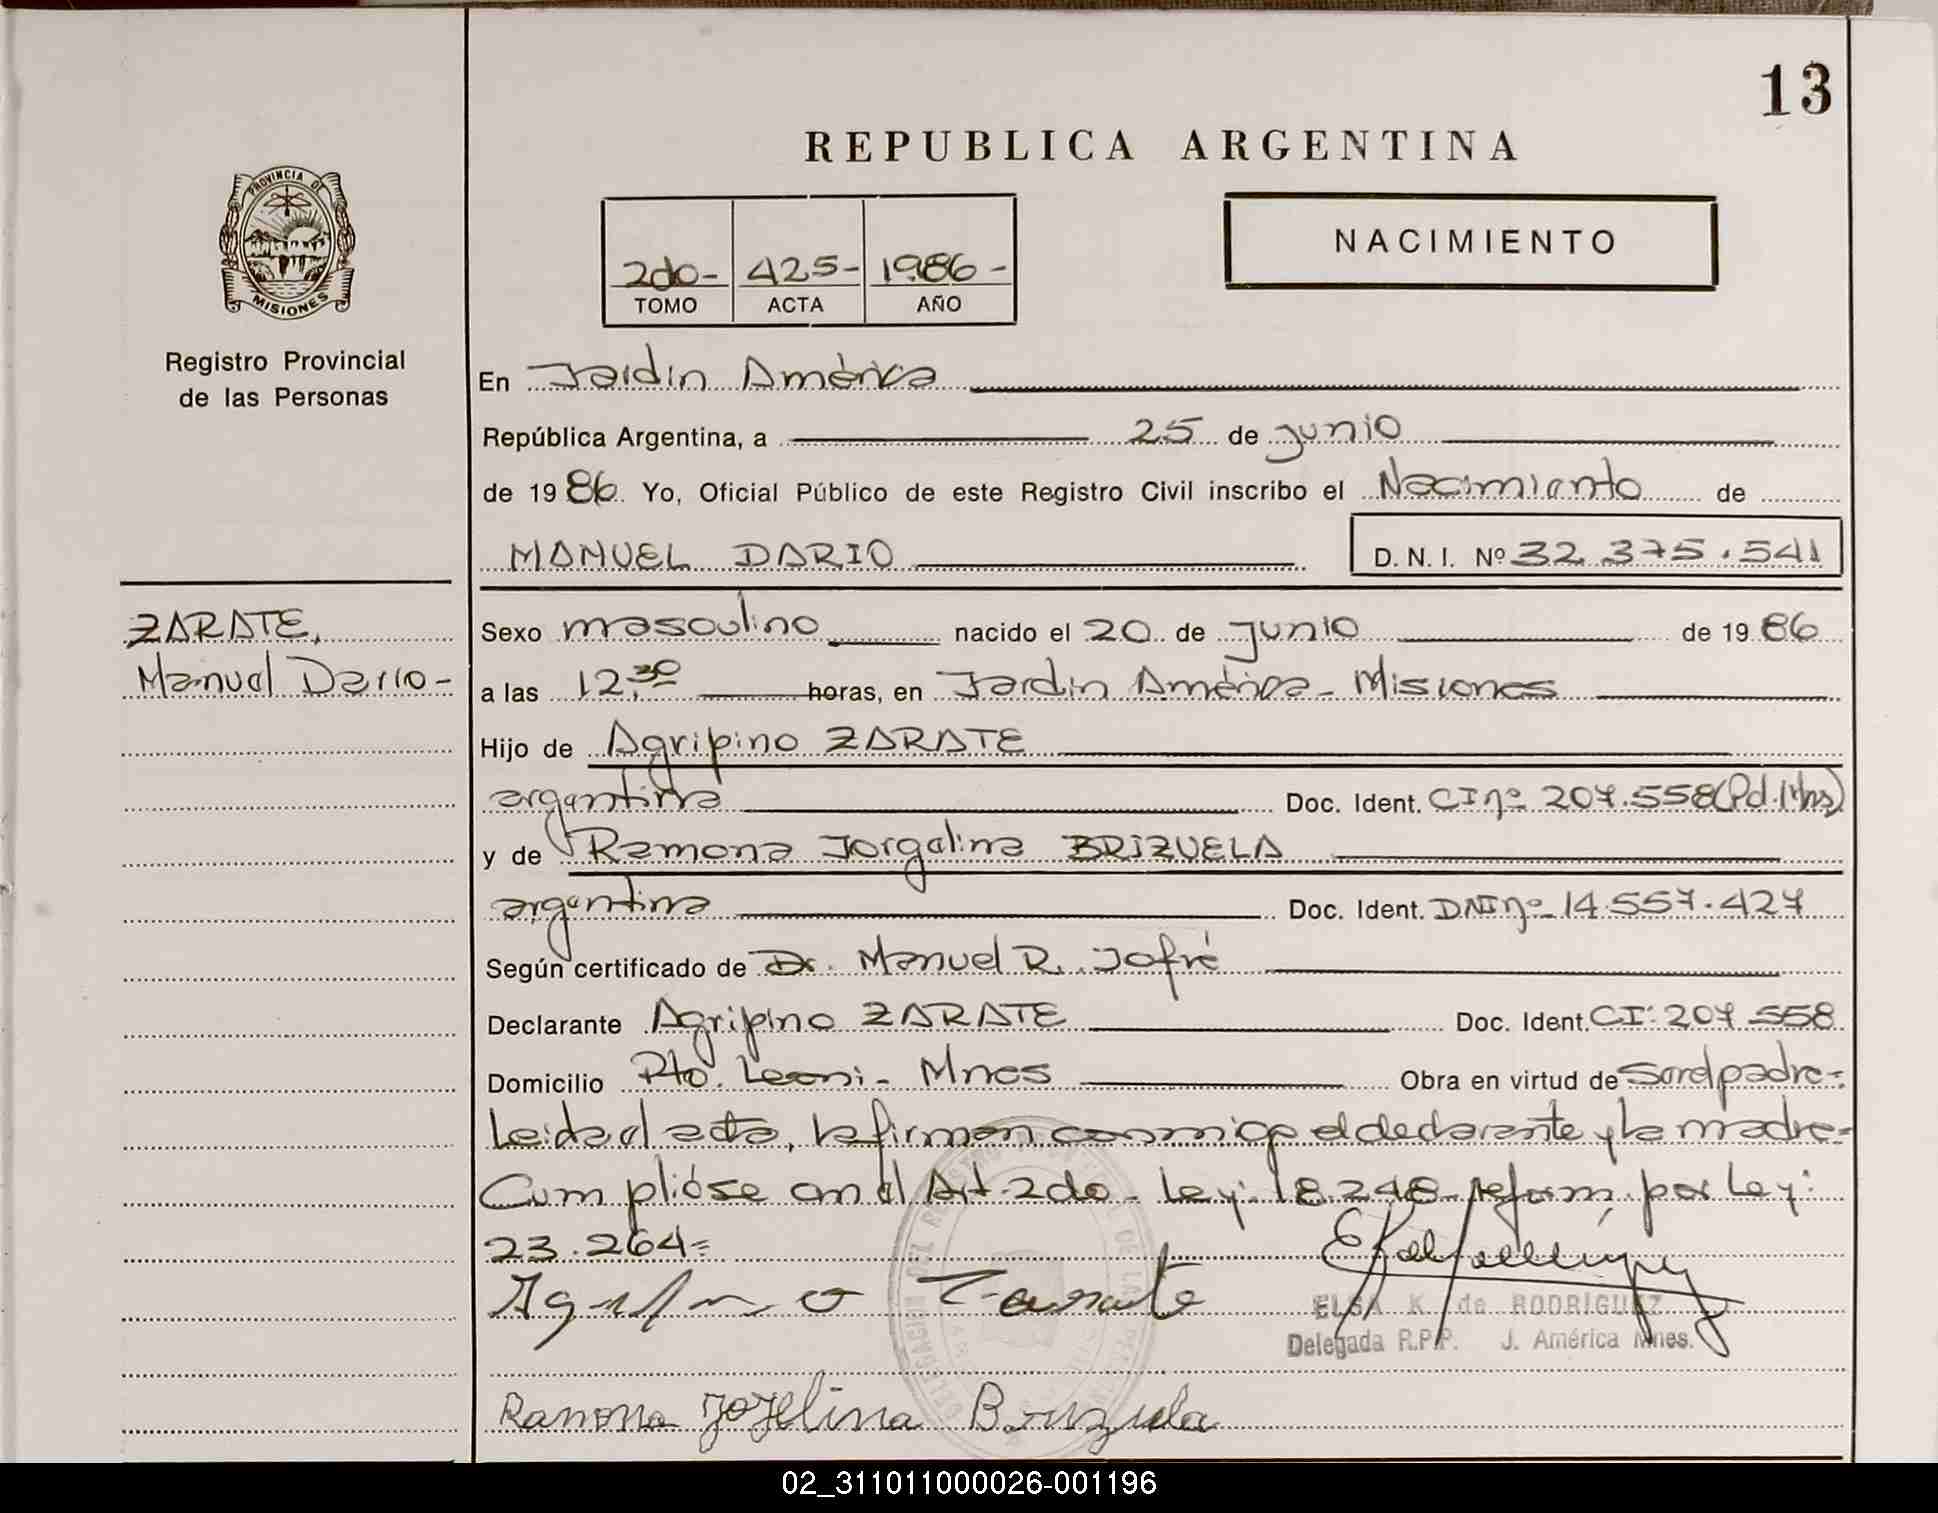 13
REPUBLICA ARGENTINA
PROVINCIA DE
MISIONES
Registro Provincial
de las Personas
2do- 425- 1986-
TOMO ACTA AÑO
NACIMIENTO
En Jardín América
República Argentina, a 25 de junio
de 1986. Yo, Oficial Público de este Registro Civil inscribo el Nacimiento de
MANUEL DARIO D. N. I. Nº 32.375.541
ZARATE,
Manuel Dario-
Sexo masculino nacido el 20 de junio de 1986
a las 12,30 horas, en Jardín América - Misiones
Hijo de Agripino ZARATE
argentina Doc. Ident. CI nº 207.558
y de Ramona Jorgelina BRIZUELA
argentina Doc. Ident. DNI nº 14.557.427
Según certificado de Dr. Manuel R. Jofré
Declarante Agripino ZARATE Doc. Ident. CI: 207.558
Domicilio Pto. Leoni - Mnes Obra en virtud de padre-
Leida el acta, la firman conmigo el declarante y la madre-
Cumplióse con el Art. 2do - Ley: 18.248 reform, por Ley:
23.264=
Zarate
ELSA K. de RODRIGUEZ
Delegada R.P.P. J. América Mnes.
Ramona Brizuela
02_311011000026-001196